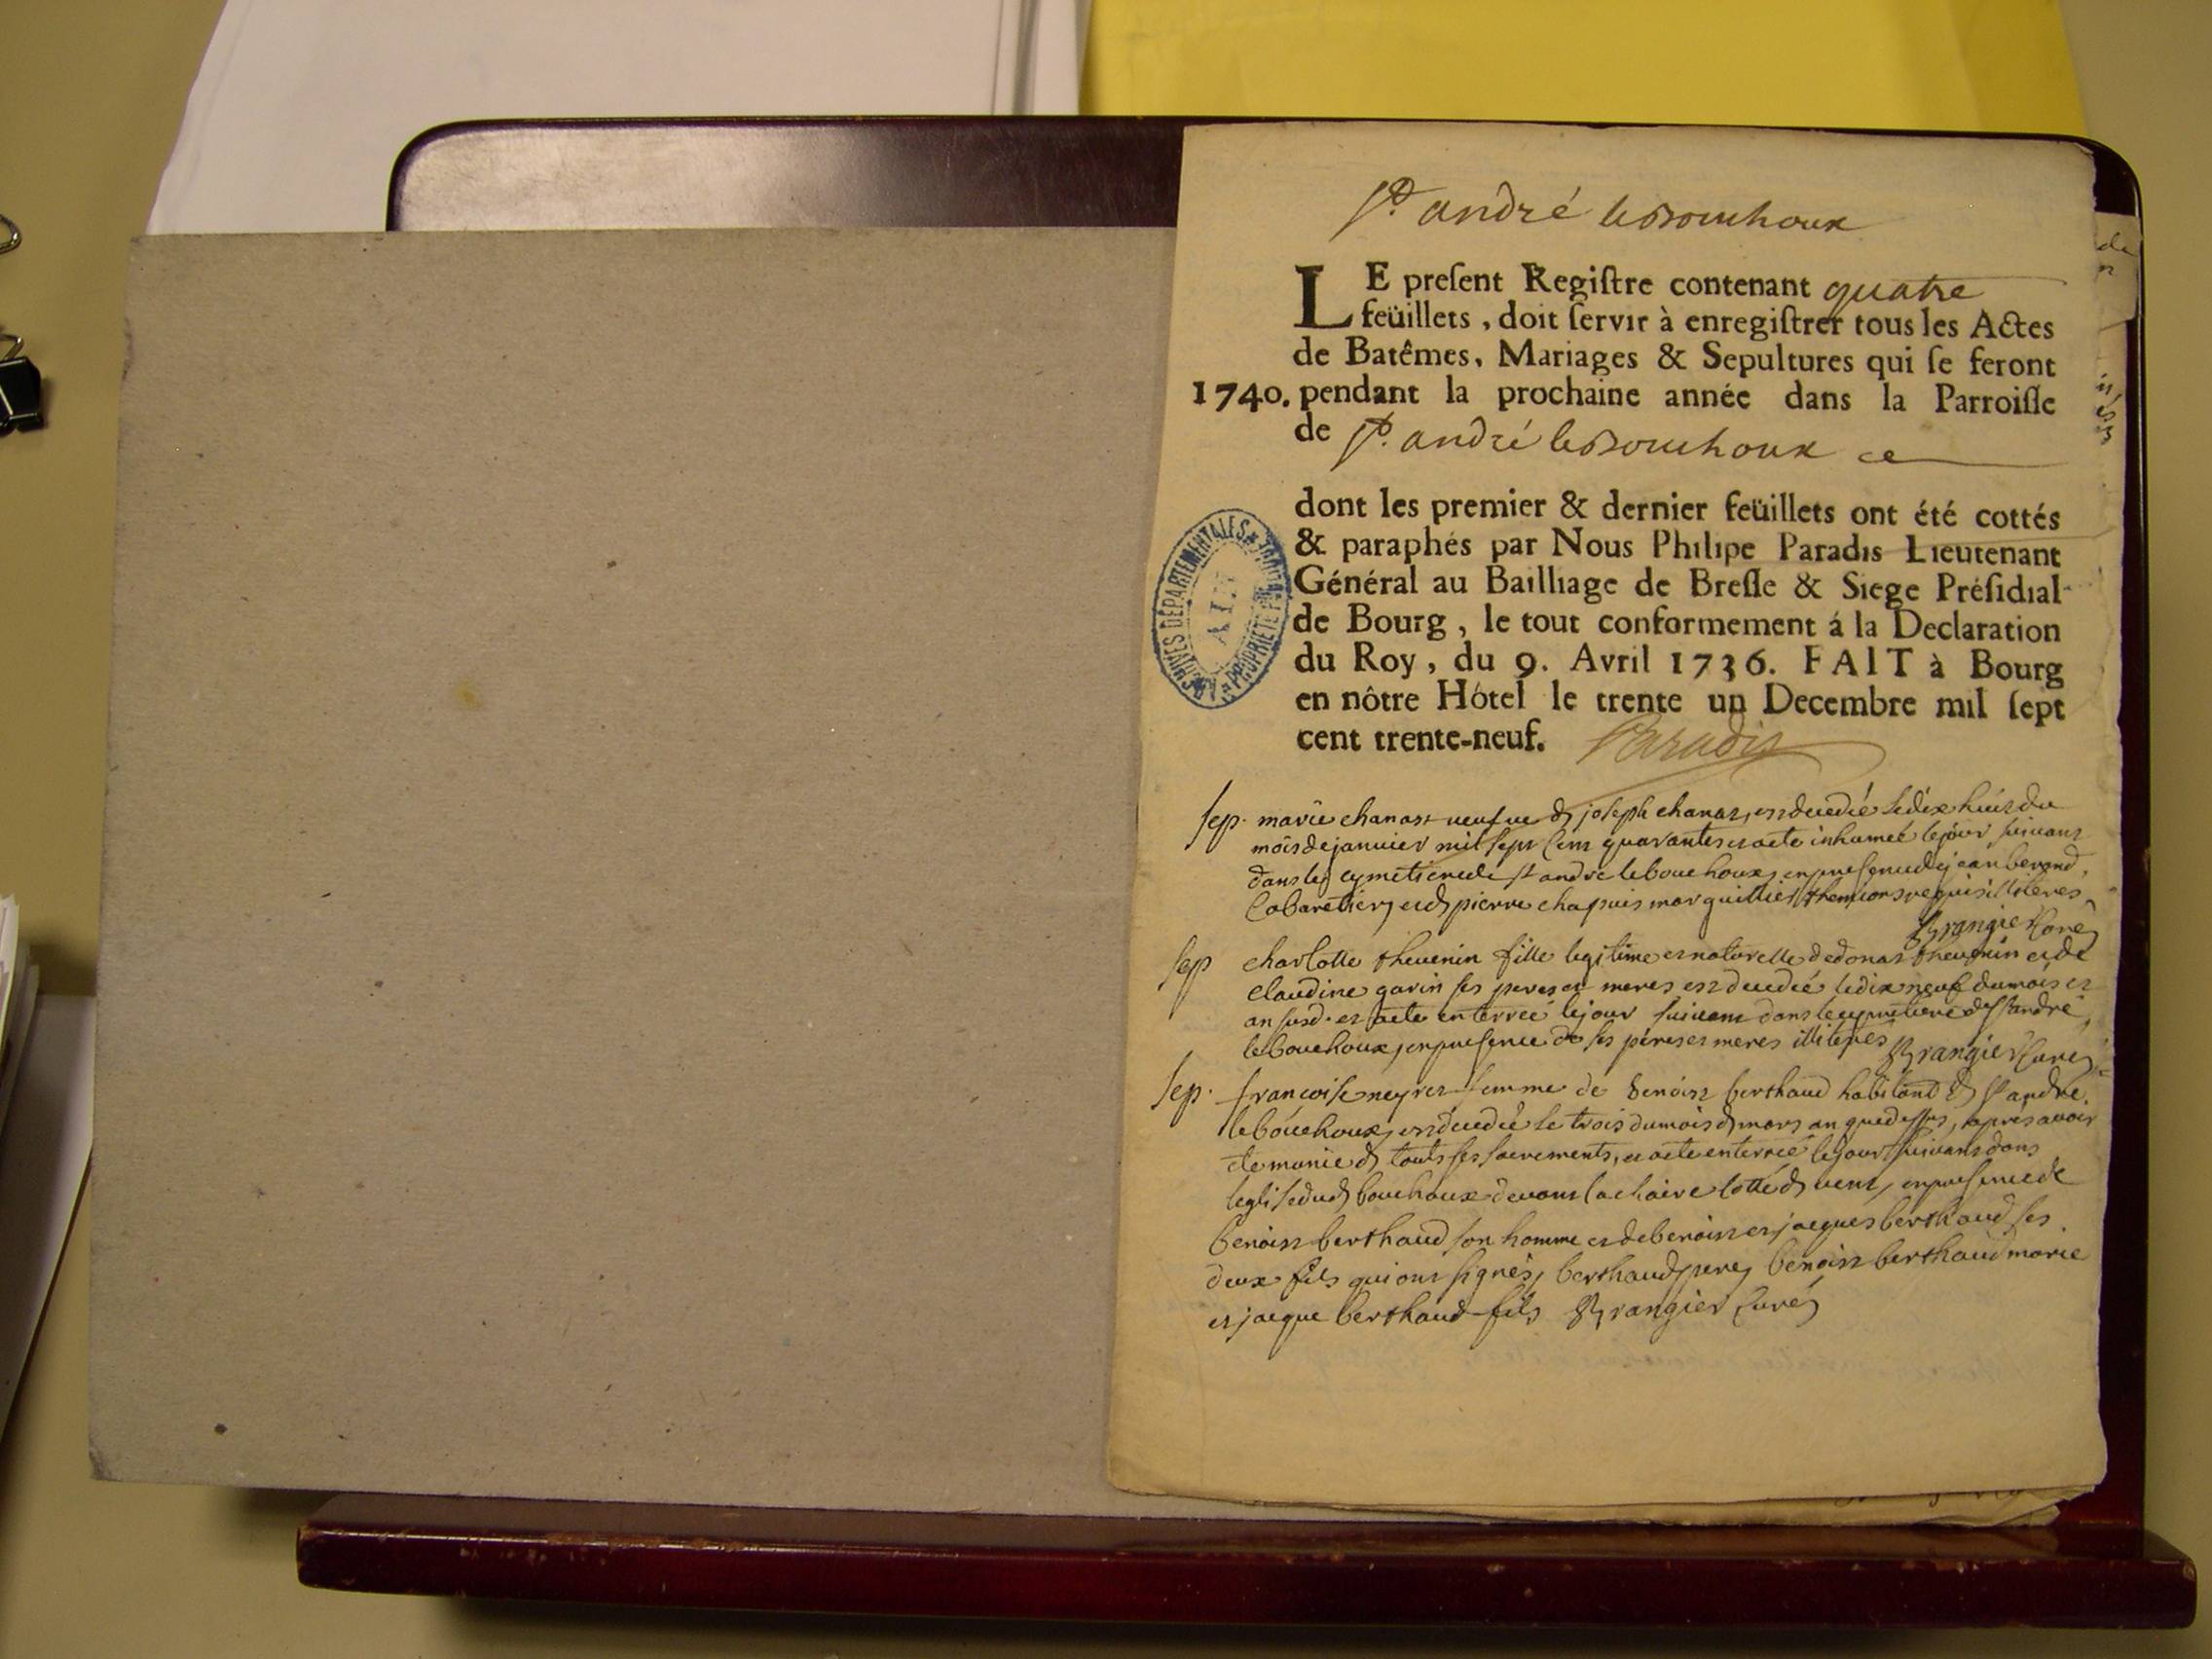 St. andré le Bouchoux
LE preſent Regiſtre contenant quatre
feüillets, doit ſervir à enregiſtrer tous les Actes
de Batêmes, Mariages & Sepultures qui ſe feront
1740. pendant la prochaine année dans la Parroiſſe
de St. andré le Bouchoux ce
dont les premier & dernier feüillets ont été cottés
& paraphés par Nous Philipe Paradis Lieutenant
Général au Bailliage de Breſſe & Siege Préſidial
de Bourg, le tout conformement á la Declaration
du Roy, du 9. Avril 1736. FAIT à Bourg
en nôtre Hôtel le trente un Decembre mil ſept
cent trente-neuf. Paradis
ARCHIVES DÉPARTEMENTALES
AIN
PROPRIÉTÉ
sep. marie chanast veufve de joseph chanas, est decedée le dix huit du
mois de janvier mil sept cent quarante et a ete inhumée le jour suivant
dans le cymetiere de st andre le bouchoux, en presence de jean
Cabaretier, et de pierre chapuis marguillier themions requis illiteres
Brangier Curé
sep charlotte thevenin fille legitime et naturelle de donat thevenin et de
claudine gavin ses peres et meres est decedée le dix neuf du mois et
an susd. et a ete enterrée le jour suivant dans le cymetiere de st andre
le bouchoux, en presence de ses peres et meres illiteres Brangier Curé
sep. francoise neyret femme de benoist berthaud habitant de st andre
le bouchoux, est decedée le trois du mois de mars an que dessus, apres avoir
ete munie de touts ses sacrements, et a ete enterrée le jour suivant dans
leglise dud bouchoux devant la chaire cotté de vent, en presence de
benoist berthaud son homme et de benoist et jacques berthaud ses
deux fils qui ont signés, berthaud pere, benoist berthaud marie
et jacque berthaud fils Brangier Curé